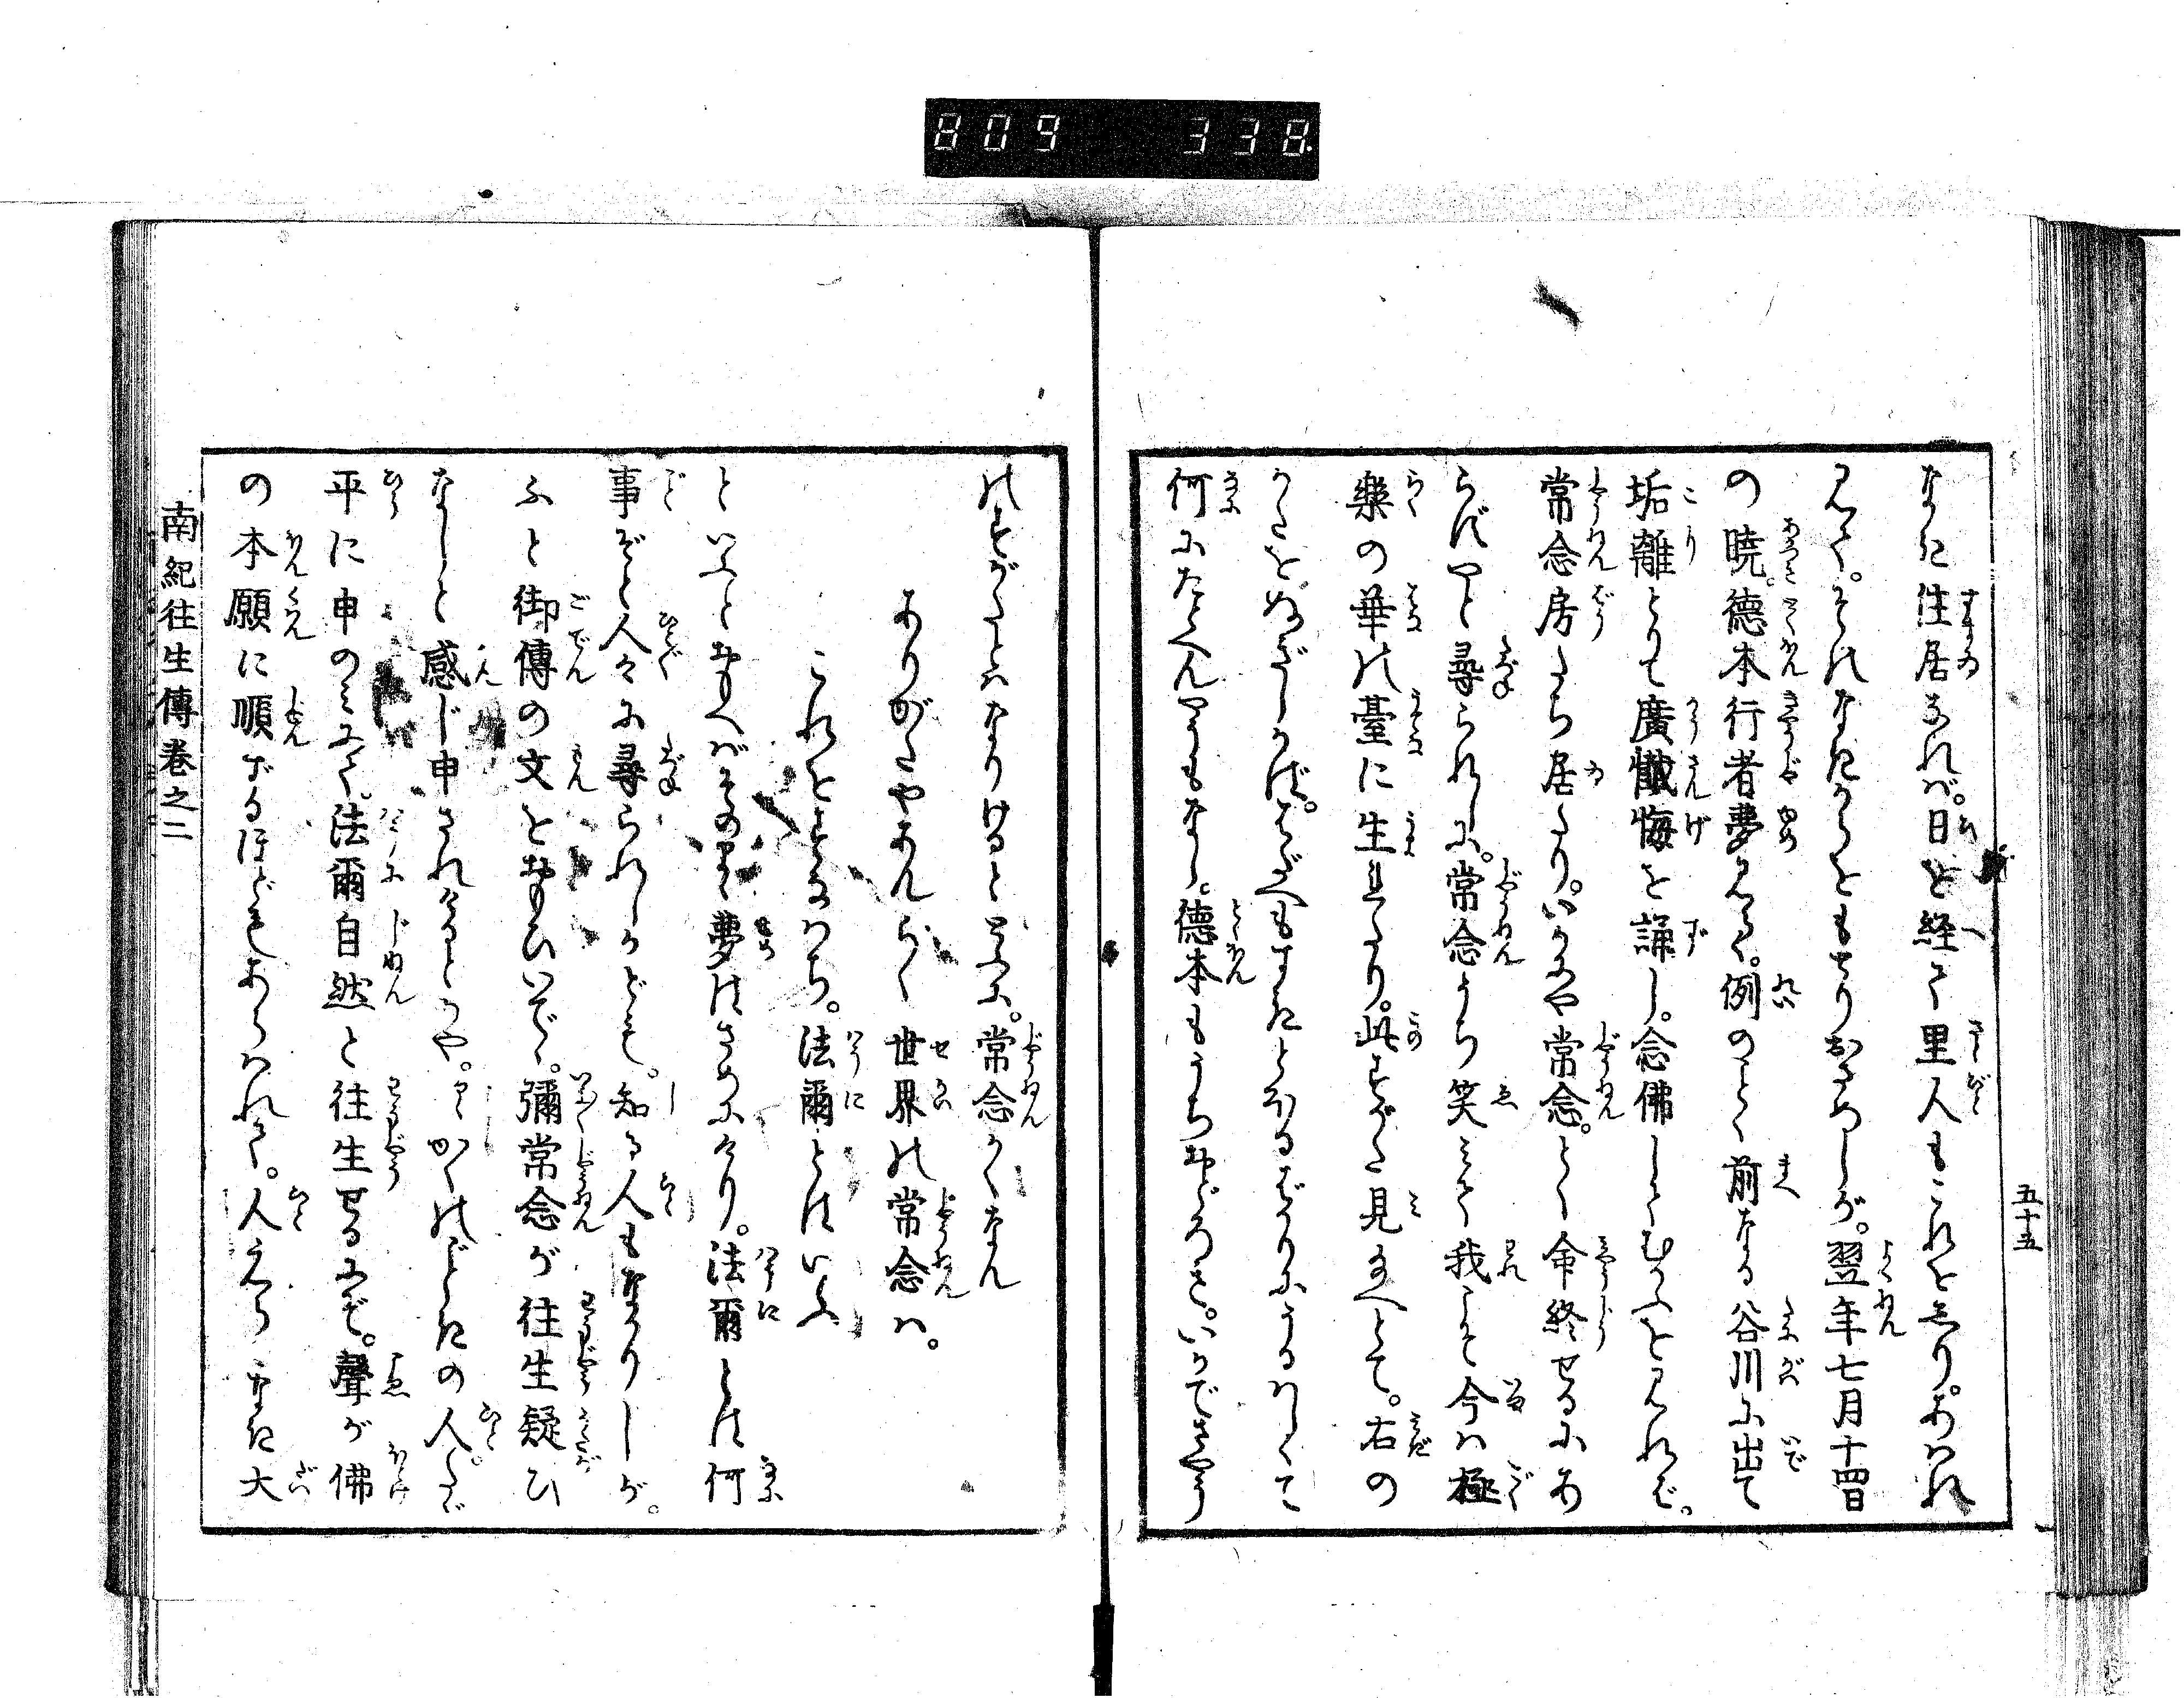 809 338
五十五
なる住居なれバ。日を経て里人もこれをしり。あわれ
みて。そのなきからをもとりおさめしが。翌年七月十四日
の暁。徳本行者夢みらく。例のごとく前なる谷川に出て
垢離とりて廣懺悔を誦し。念佛してむかふをみれバ。
常念房たち居たり。いかにや常念。とく命終せるにあ
らずやと尋られしに。常念うち笑ミて我こそ今ハ極
樂の華の臺に生れたり。此すがた見給へとて。右の
かたをぬぎしかバ。はだへもすきとほるばかりにうるハしくて
何にたとへんやうもなし。徳本もうちおどろき。いかでさやう
のすがたとハなりけると問ふに。常念かくなん
ありがたやあんらく世界の常念ハ。
これをすなハち。法爾とはいふ
といふとおもへバその まゝ夢はさめにけり。法爾とは何
事ぞと人々に尋られしかども。知る人もなかりしが。
ふと御傳の文をおもひいでゝ。彌常念が往生疑ひ
なしと感じ申されけるとかや。 かくのごときの人。たゞ
平に申のミにて。法爾自然と往生せるにぞ。聲が佛
の本願に順ずるほどもあらハれて。人々 大
南紀往生傳巻之二